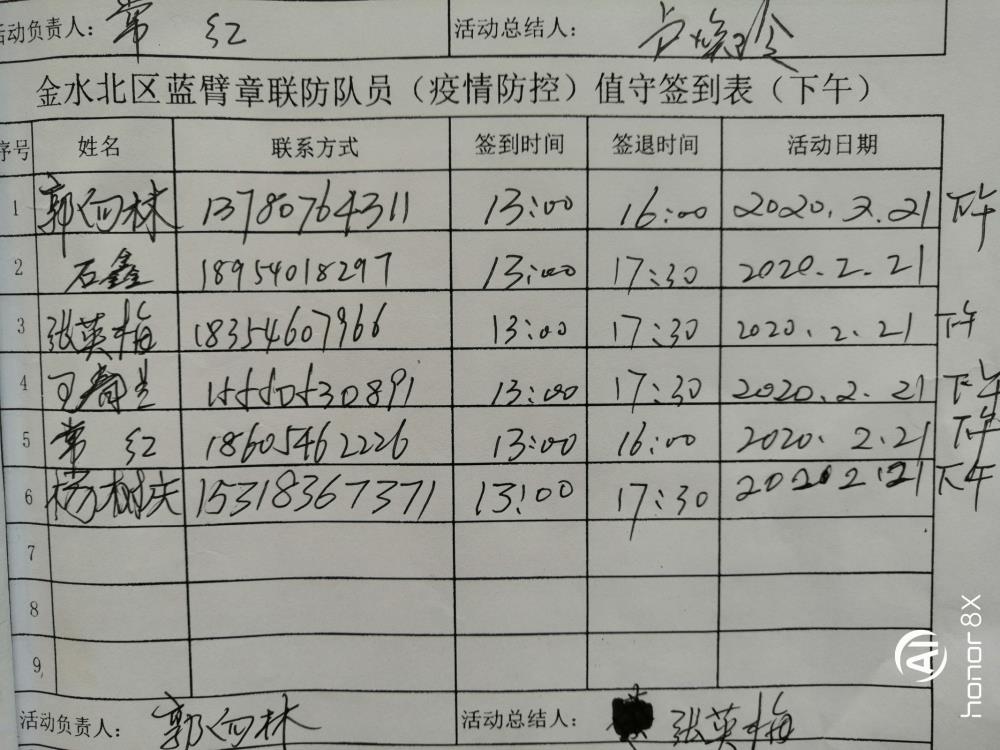 活动负责人： 常 红 活动总结人： 卢焕玲
金水北区蓝臂章联防队员（疫情防控）值守签到表（下午）
序号 姓名 联系方式 签到时间 签退时间 活动日期
1 郭向林 13780764311 13:00 16:00 2020.2.21 下午
2 石鑫 18954018297 13:00 17:30 2020.2.21
3 张英梅 18354607966 13:00 17:30 2020.2.21 下午
4 13:00 17:30 2020.2.21 下午
5 常 红 18605462226 13:00 16:00 2020.2.21 下午
6 杨树庆 15318367371 13:00 17:30 2020 2 21 下午
7
8
9
活动负责人： 郭向林 活动总结人： 张英梅
AI
honor 8X